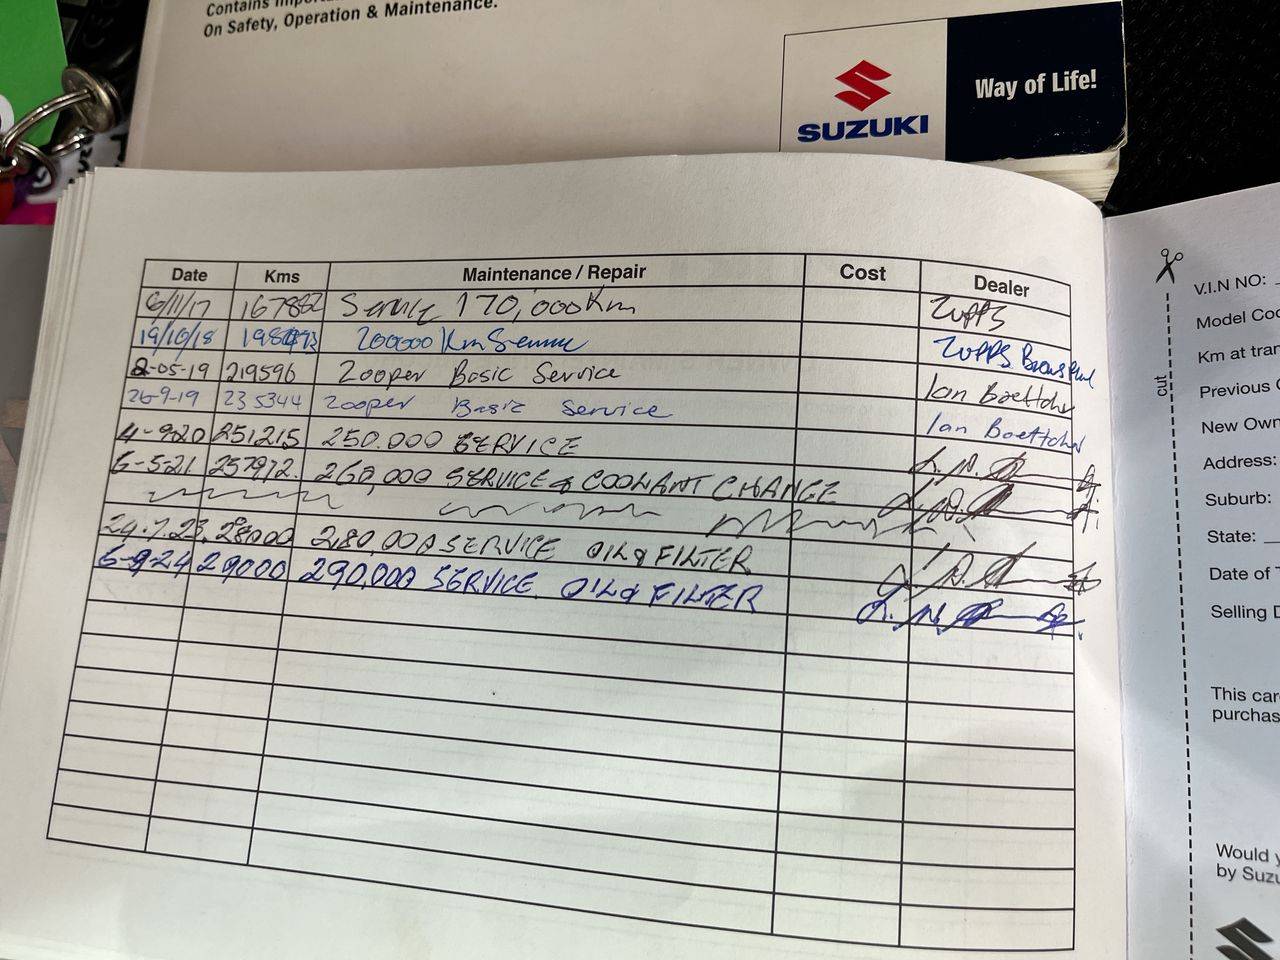 Contains
On Safety, Operation & Maintenance.
SUZUKI
Way of Life!
Date Kms Maintenance / Repair Cost Dealer
6/11/17 167882 Service 170,000Km Zupps
19/10/18 200000 Km Service Zupps
2-05-19 219596 Zooper Basic Service Ian Boettcher
26-9-19 235344 Zooper Basic Service Ian Boettcher
4-9-20 251215 250.000 SERVICE
6-5-21 257972. 260,000 SERVICE & COOLANT CHANGE
24.7.23. 28000 280,000 SERVICE OIL & FILTER
6-9-24 29000 290,000 SERVICE. OIL & FILTER
cut
V.I.N NO:
Model
Km at
Previous
New
Address:
Suburb:
State:
Date of
Selling
This
Would
by